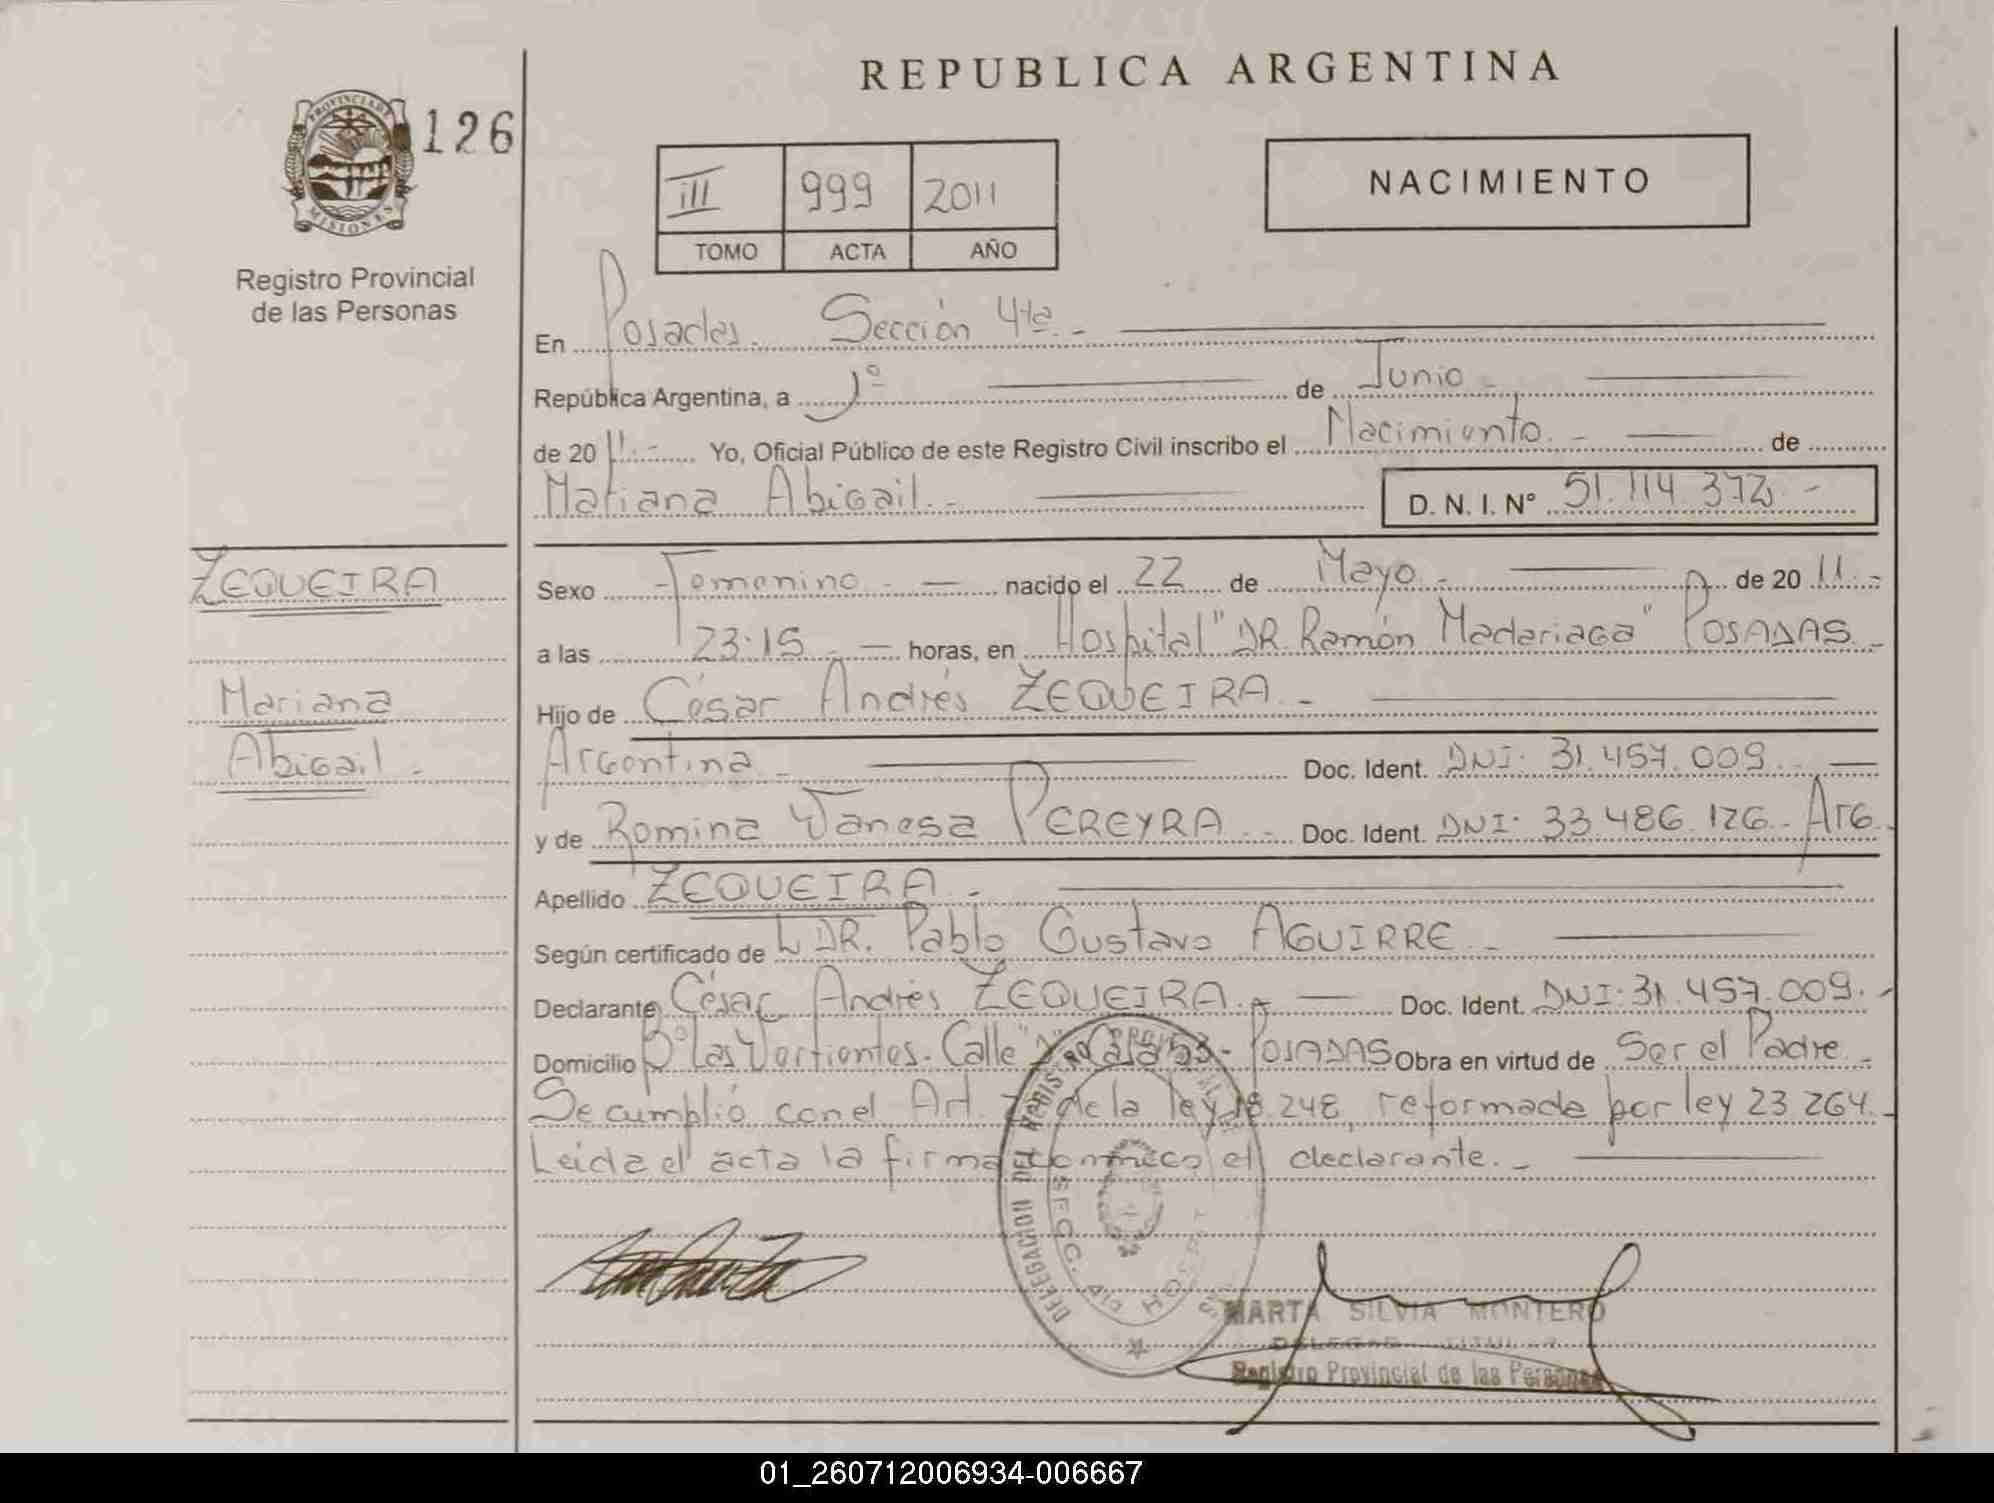 REPUBLICA ARGENTINA
PROVINCIA DE MISIONES
126
Registro Provincial
de las Personas
III 999 2011
TOMO ACTA AÑO
NACIMIENTO
En Posadas. Sección 4ta.-
República Argentina, a 1º de Junio -
de 2011.- Yo, Oficial Público de este Registro Civil inscribo el Nacimiento.- de
Mariana Abigail.- D. N. I. Nº 51.114.372.-
ZEQUEIRA
Mariana
Abigail.-
Sexo Femenino.- nacido el 22 de Mayo.- de 2011.-
a las 23:15.- horas, en Hospital "DR. Ramón Madariaga" POSADAS.-
Hijo de César Andrés ZEQUEIRA.-
Argentina.- Doc. Ident. DNI: 31.457.009.-
y de Romina Vanesa PEREYRA.- Doc. Ident. DNI: 33.486.126.- Arg.
Apellido ZEQUEIRA.-
Según certificado de DR. Pablo Gustavo AGUIRRE.-
Declarante César Andrés ZEQUEIRA.- Doc. Ident. DNI: 31.457.009.-
Domicilio Bº Las Vertientes. Calle Casa 53- POSADAS Obra en virtud de Ser el Padre.-
Se cumplió con el Art. de la ley 18.248, reformada por ley 23.264.-
Leida el acta la firma conmigo el declarante.-
DELEGACION DEL REGISTRO PROVINCIAL
SECC. 4ta
MARTA SILVIA MONTERO
DELEGADA TITULAR
Registro Provincial de las Personas
01_260712006934-006667